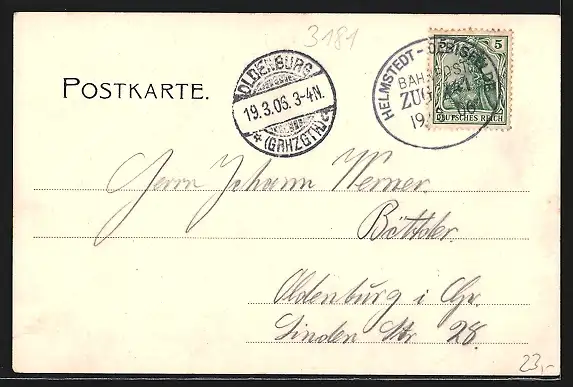 3181
POSTKARTE.
OLDENBURG
19.3.06. 3-4N.
* (GRHZGTH.) c
HELMSTEDT - OEBISFELDE
BAHNPOST
ZUG
19.
5 5
DEUTSCHES REICH
Herrn Johann Werner
Böttcher.
Oldenburg i Gr.
Linden Str 28.
23,-